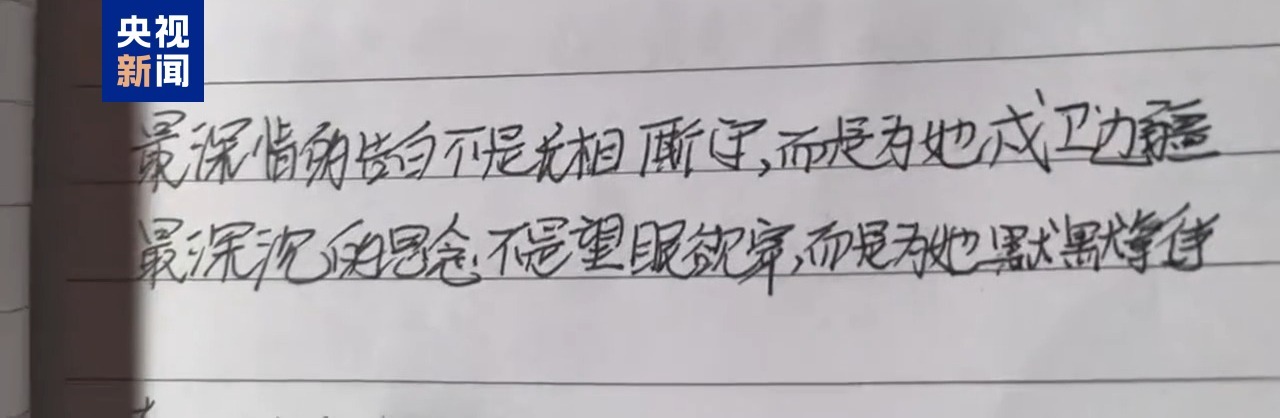 央视
新闻
最深情的告白不是相厮守,而是为她戍卫边疆
最深沉的思念不是望眼欲穿,而是为她默默等待